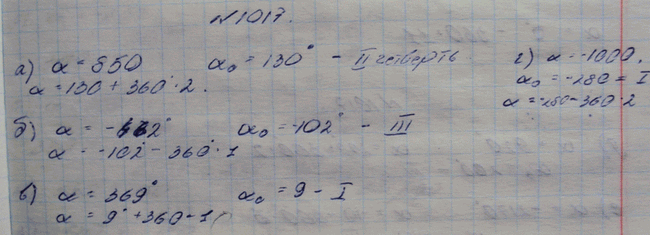 №1017.
а) α = 850 α₀ = 130° - II четверть
α = 130 + 360°·2.
б) α = -462° α₀ = -102° - III
α = -102° - 360°·1
в) α = 369° α₀ = 9 - I
α = 9° + 360 - 1
г) α = -1000.
α₀ = -280 = I
α = -280 - 360·2